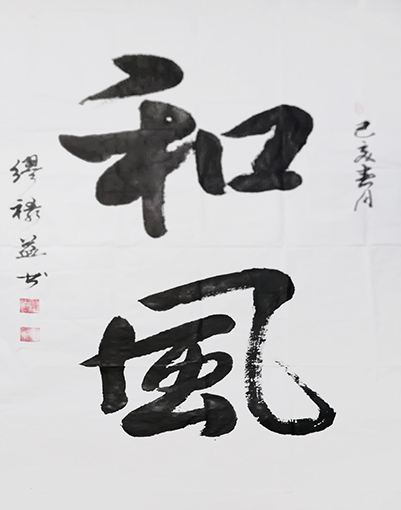 己亥春月
和風
繆禄益书